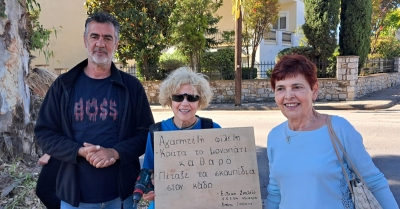 BOSS
Αγαπητέ φίλε
- Κράτα το μονοπάτι
καθαρό
Πέταξε τα σκουπίδια
στον κάδο